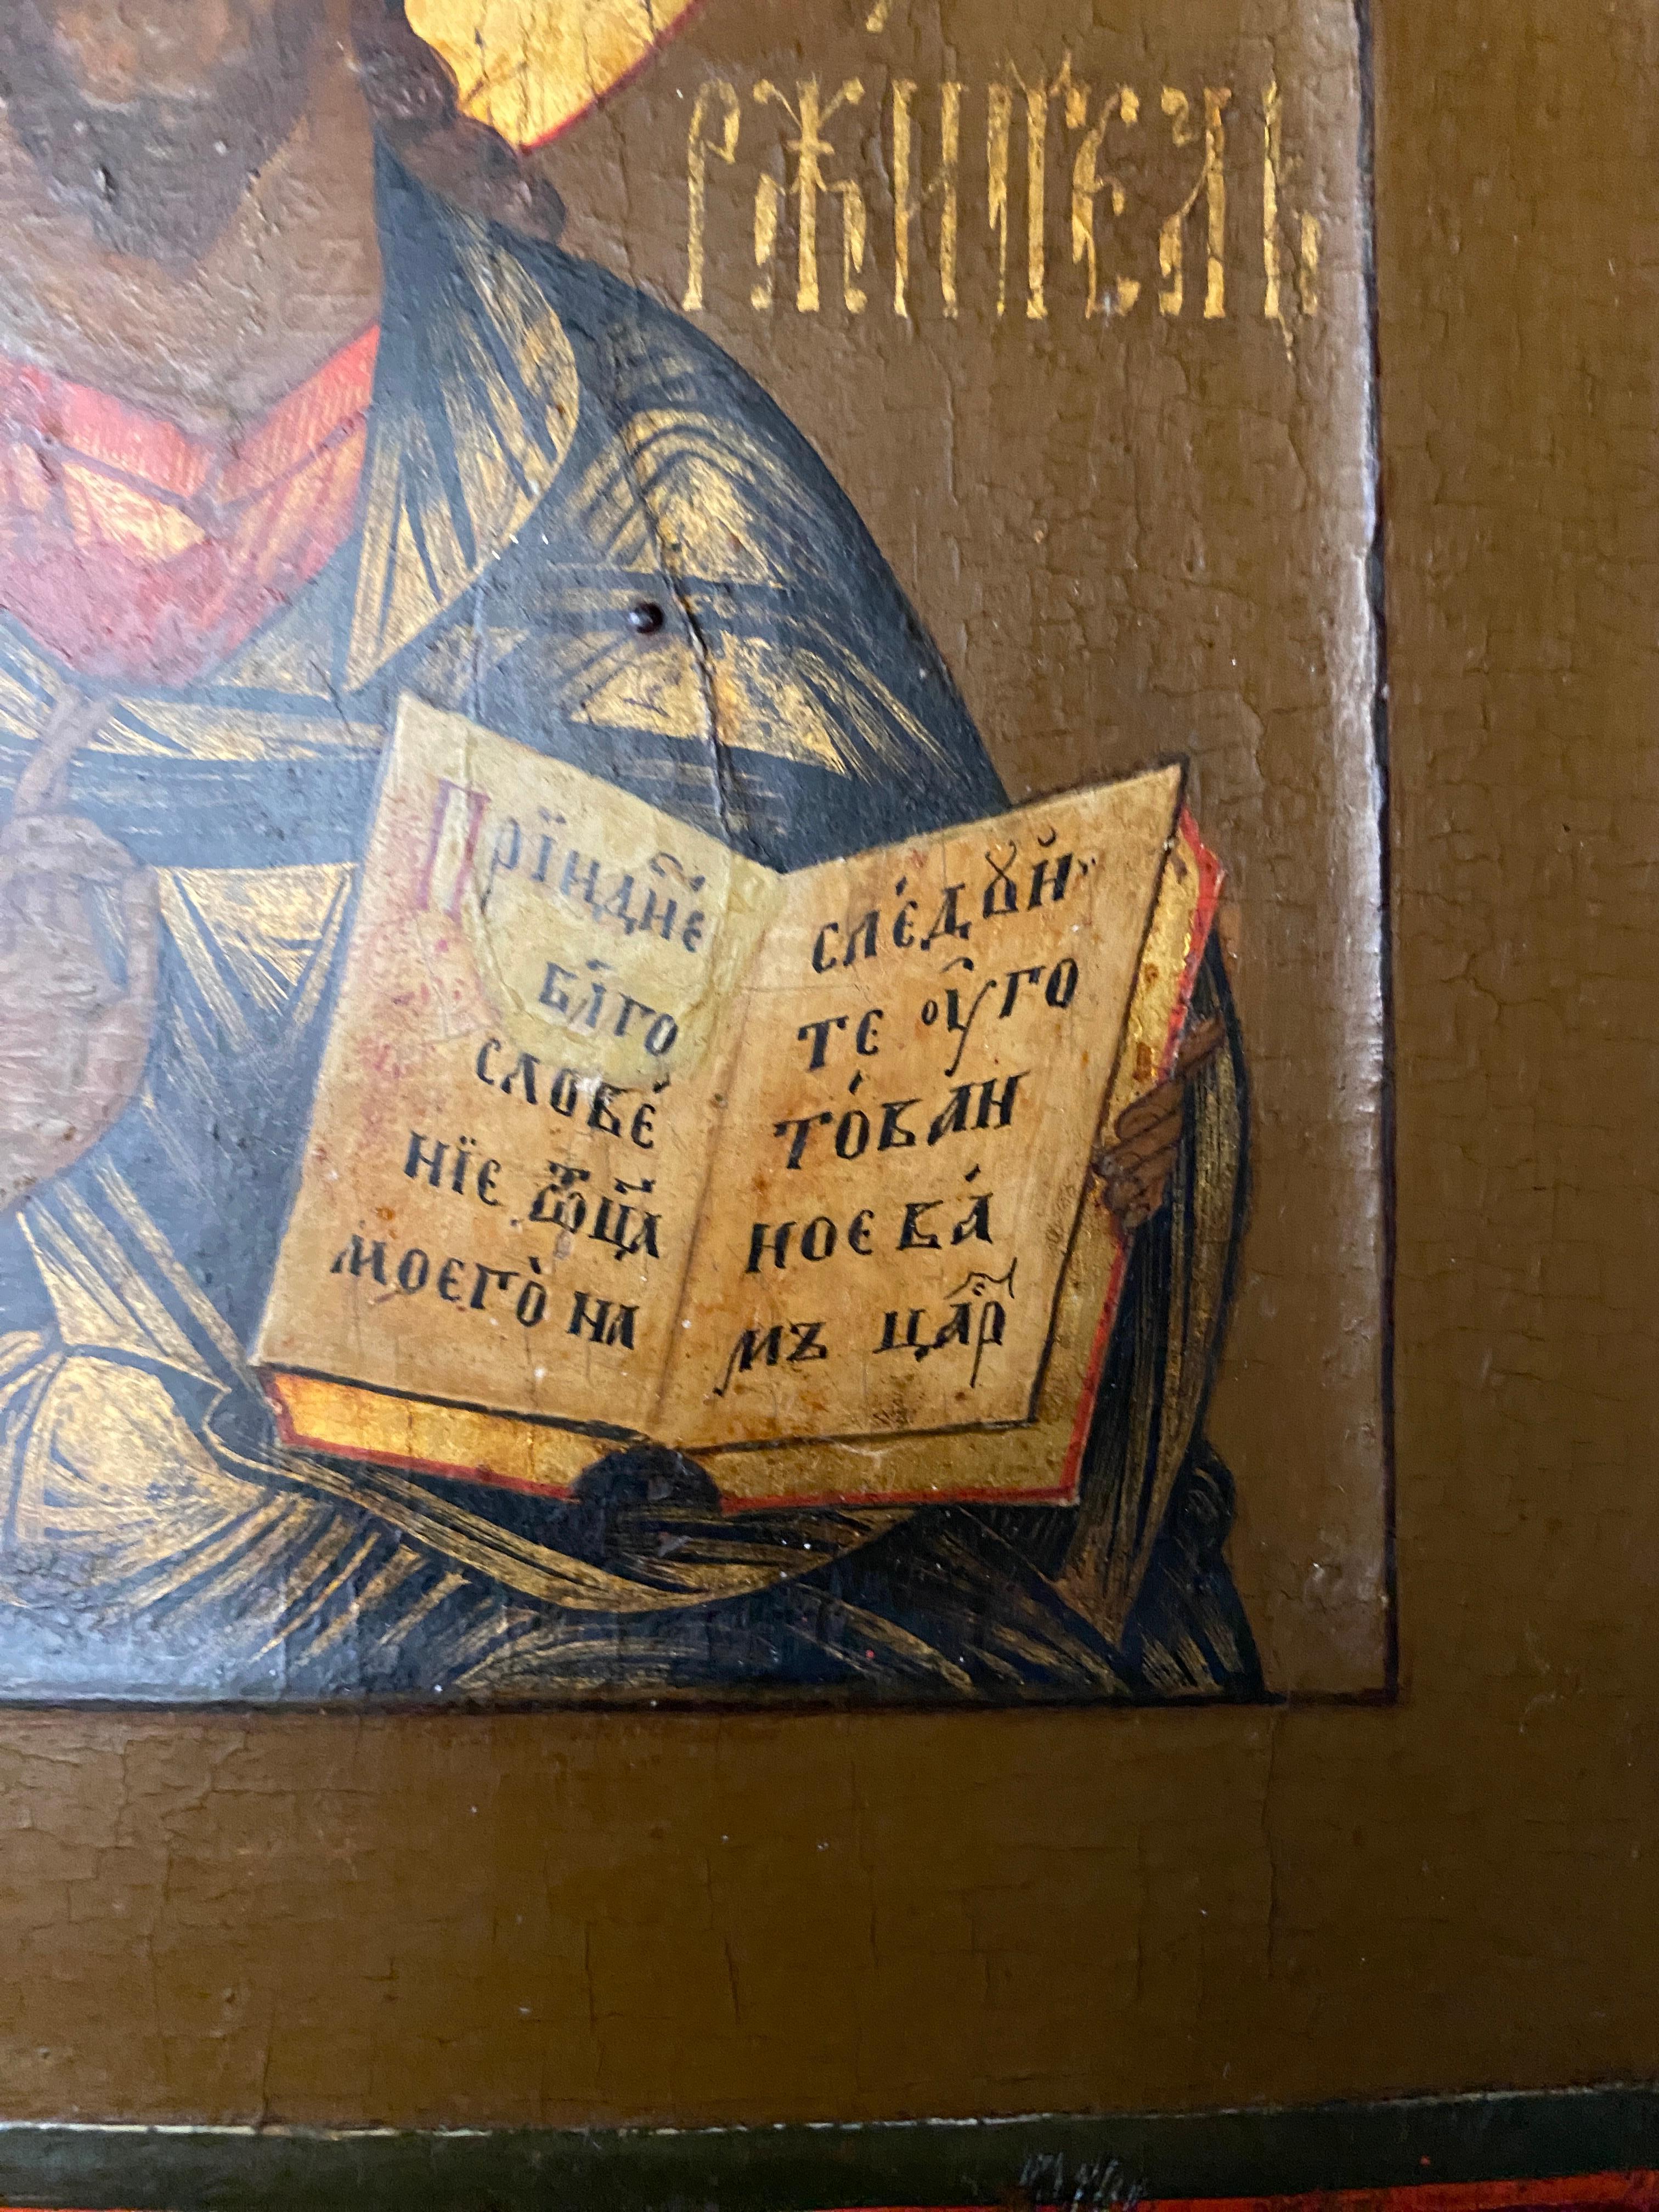 ржитель
Прїидне
бл҃го
слове́
нїе ѿц҃а
моего̀ на
сле́дꙋй
те ᲂу҆го
то́ван
ное ва́
мъ ца́р